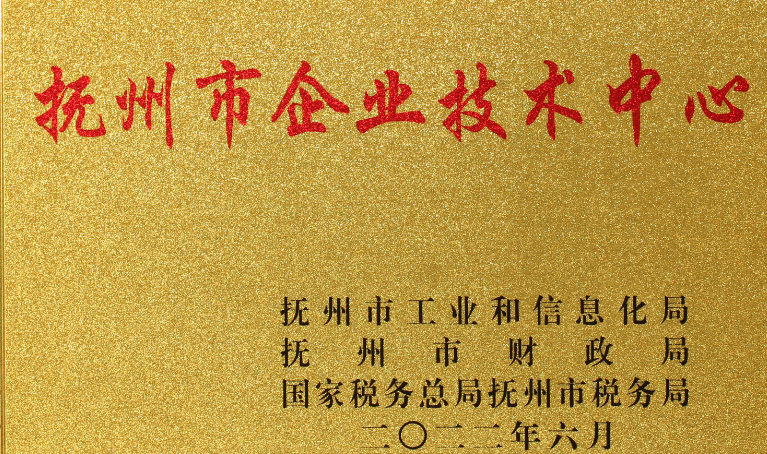 抚州市企业技术中心
抚州市工业和信息化局
抚州市财政局
国家税务总局抚州市税务局
二〇二二年六月